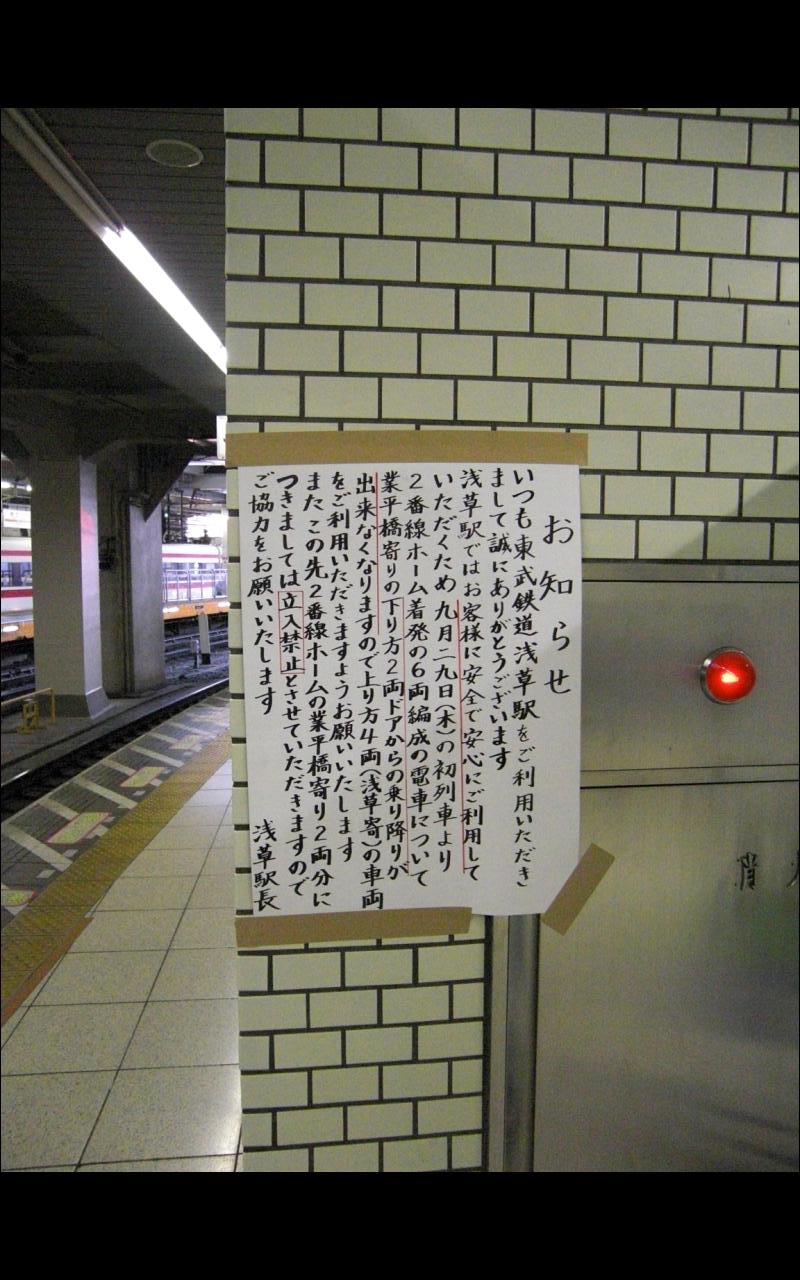 お知らせ
いつも東武鉄道浅草駅をご利用いただき
まして誠にありがとうございます
浅草駅ではお客様に安全で安心にご利用して
いただくため九月二九日(木)の初列車より
2番線ホーム着発の6両編成の電車について
業平橋寄りの下り方2両ドアからの乗り降りが
出来なくなりますので上り方4両(浅草寄)の車両
をご利用いただきますようお願いいたします
またこの先2番線ホームの業平橋寄り2両分に
つきましては立入禁止とさせていただきますので
ご協力をお願いいたします
浅草駅長
消